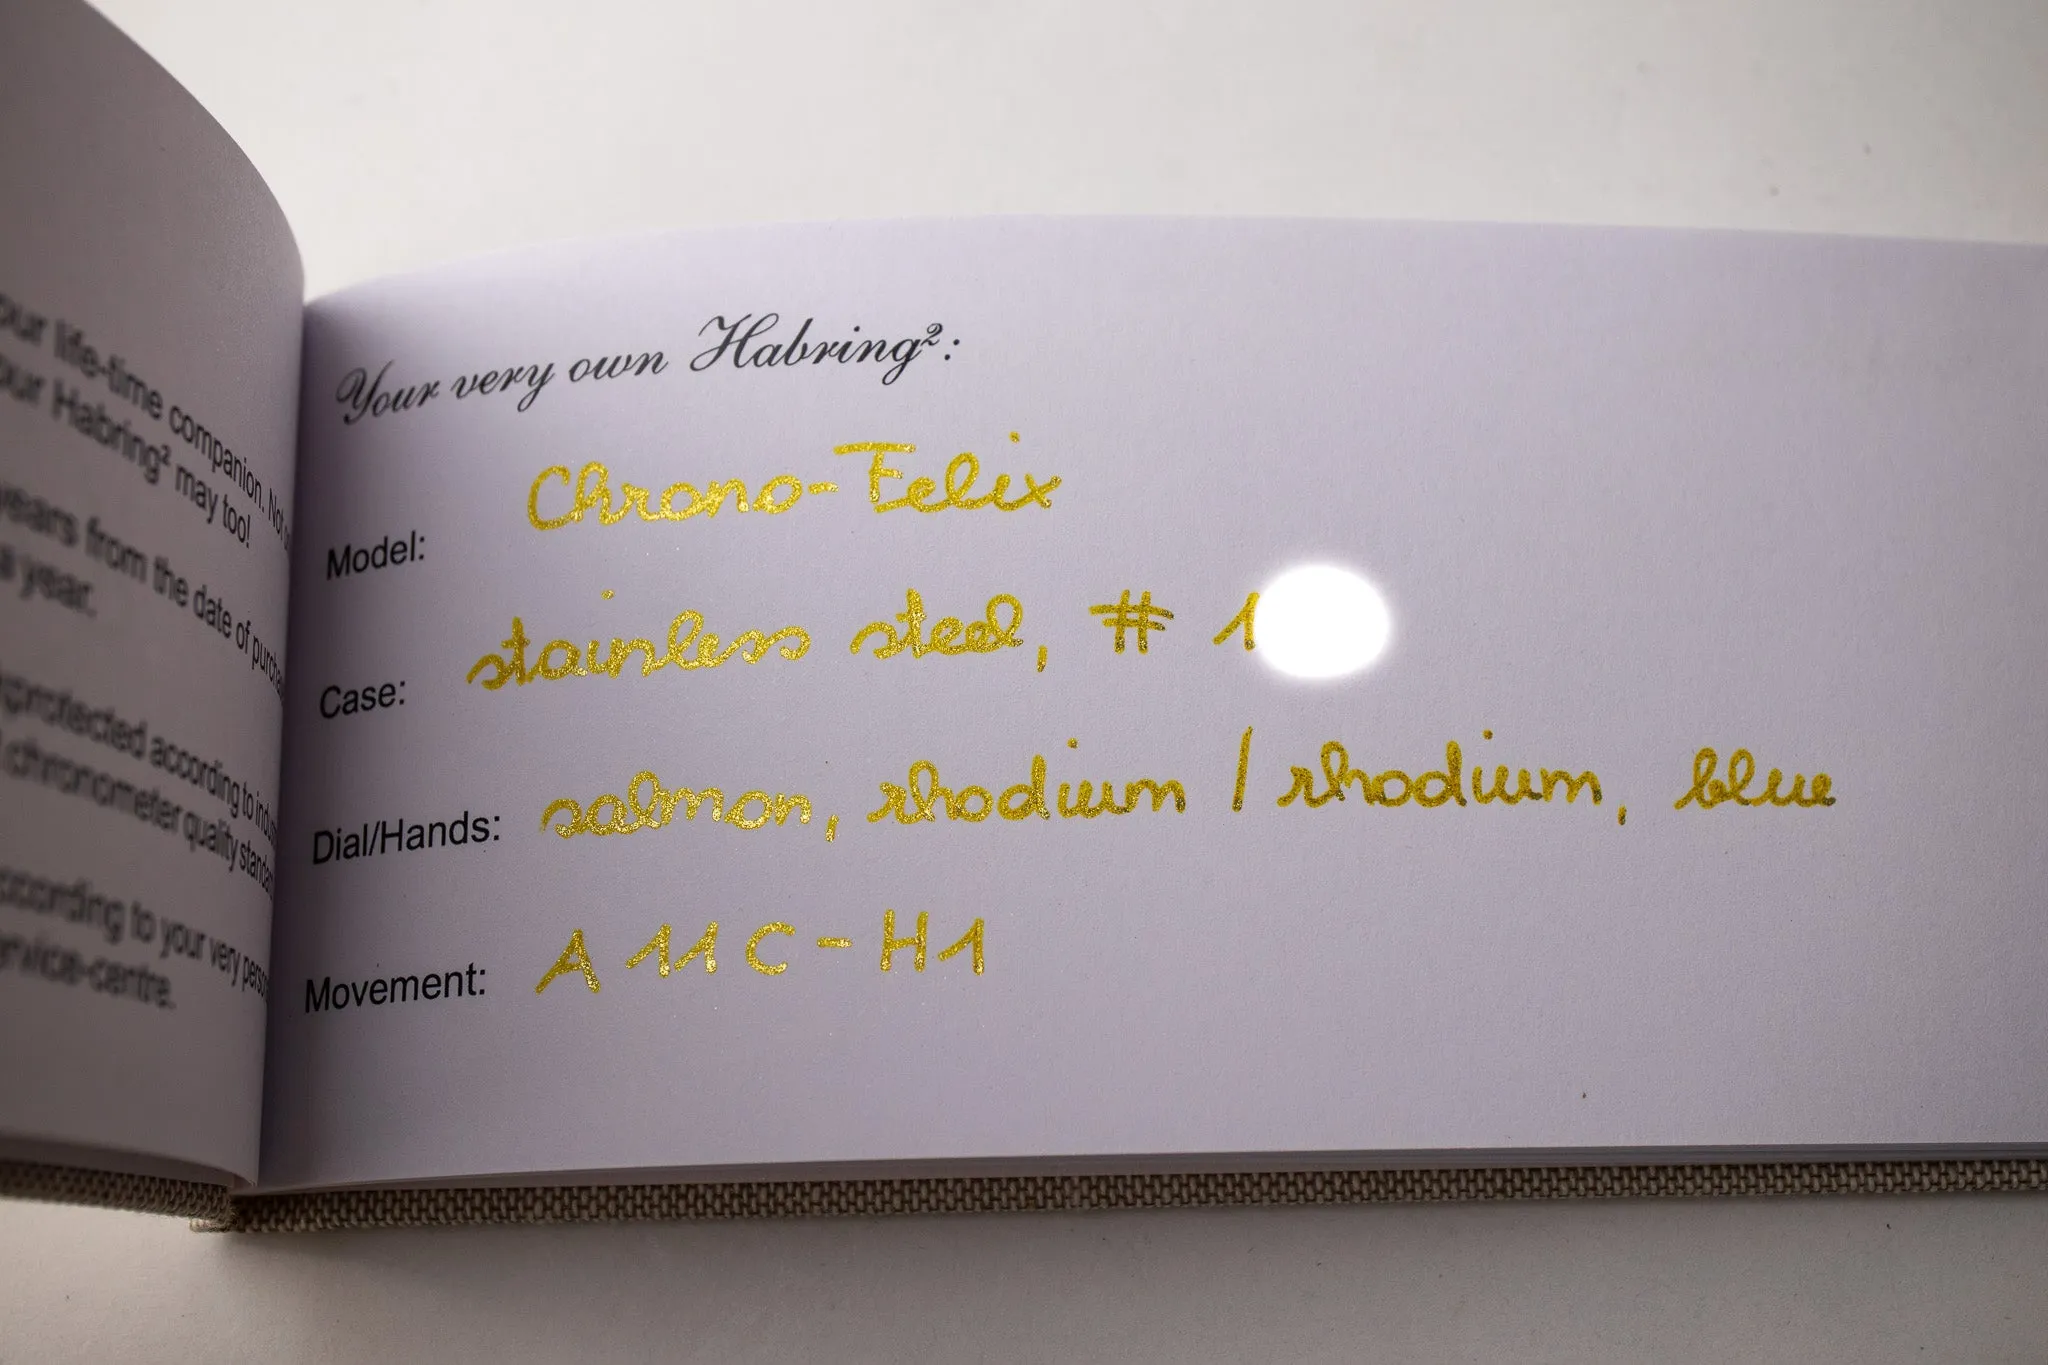 our life-time companion. Not
our Habring² may too!
years from the date of purcha
a year.
protected according to indus
chronometer quality standar
according to your very perso
service-centre.
Your very own Habring²:
Model: Chrono-Felix
Case: stainless steel, # 1
Dial/Hands: salmon, rhodium / rhodium, blue
Movement: A11C-H1